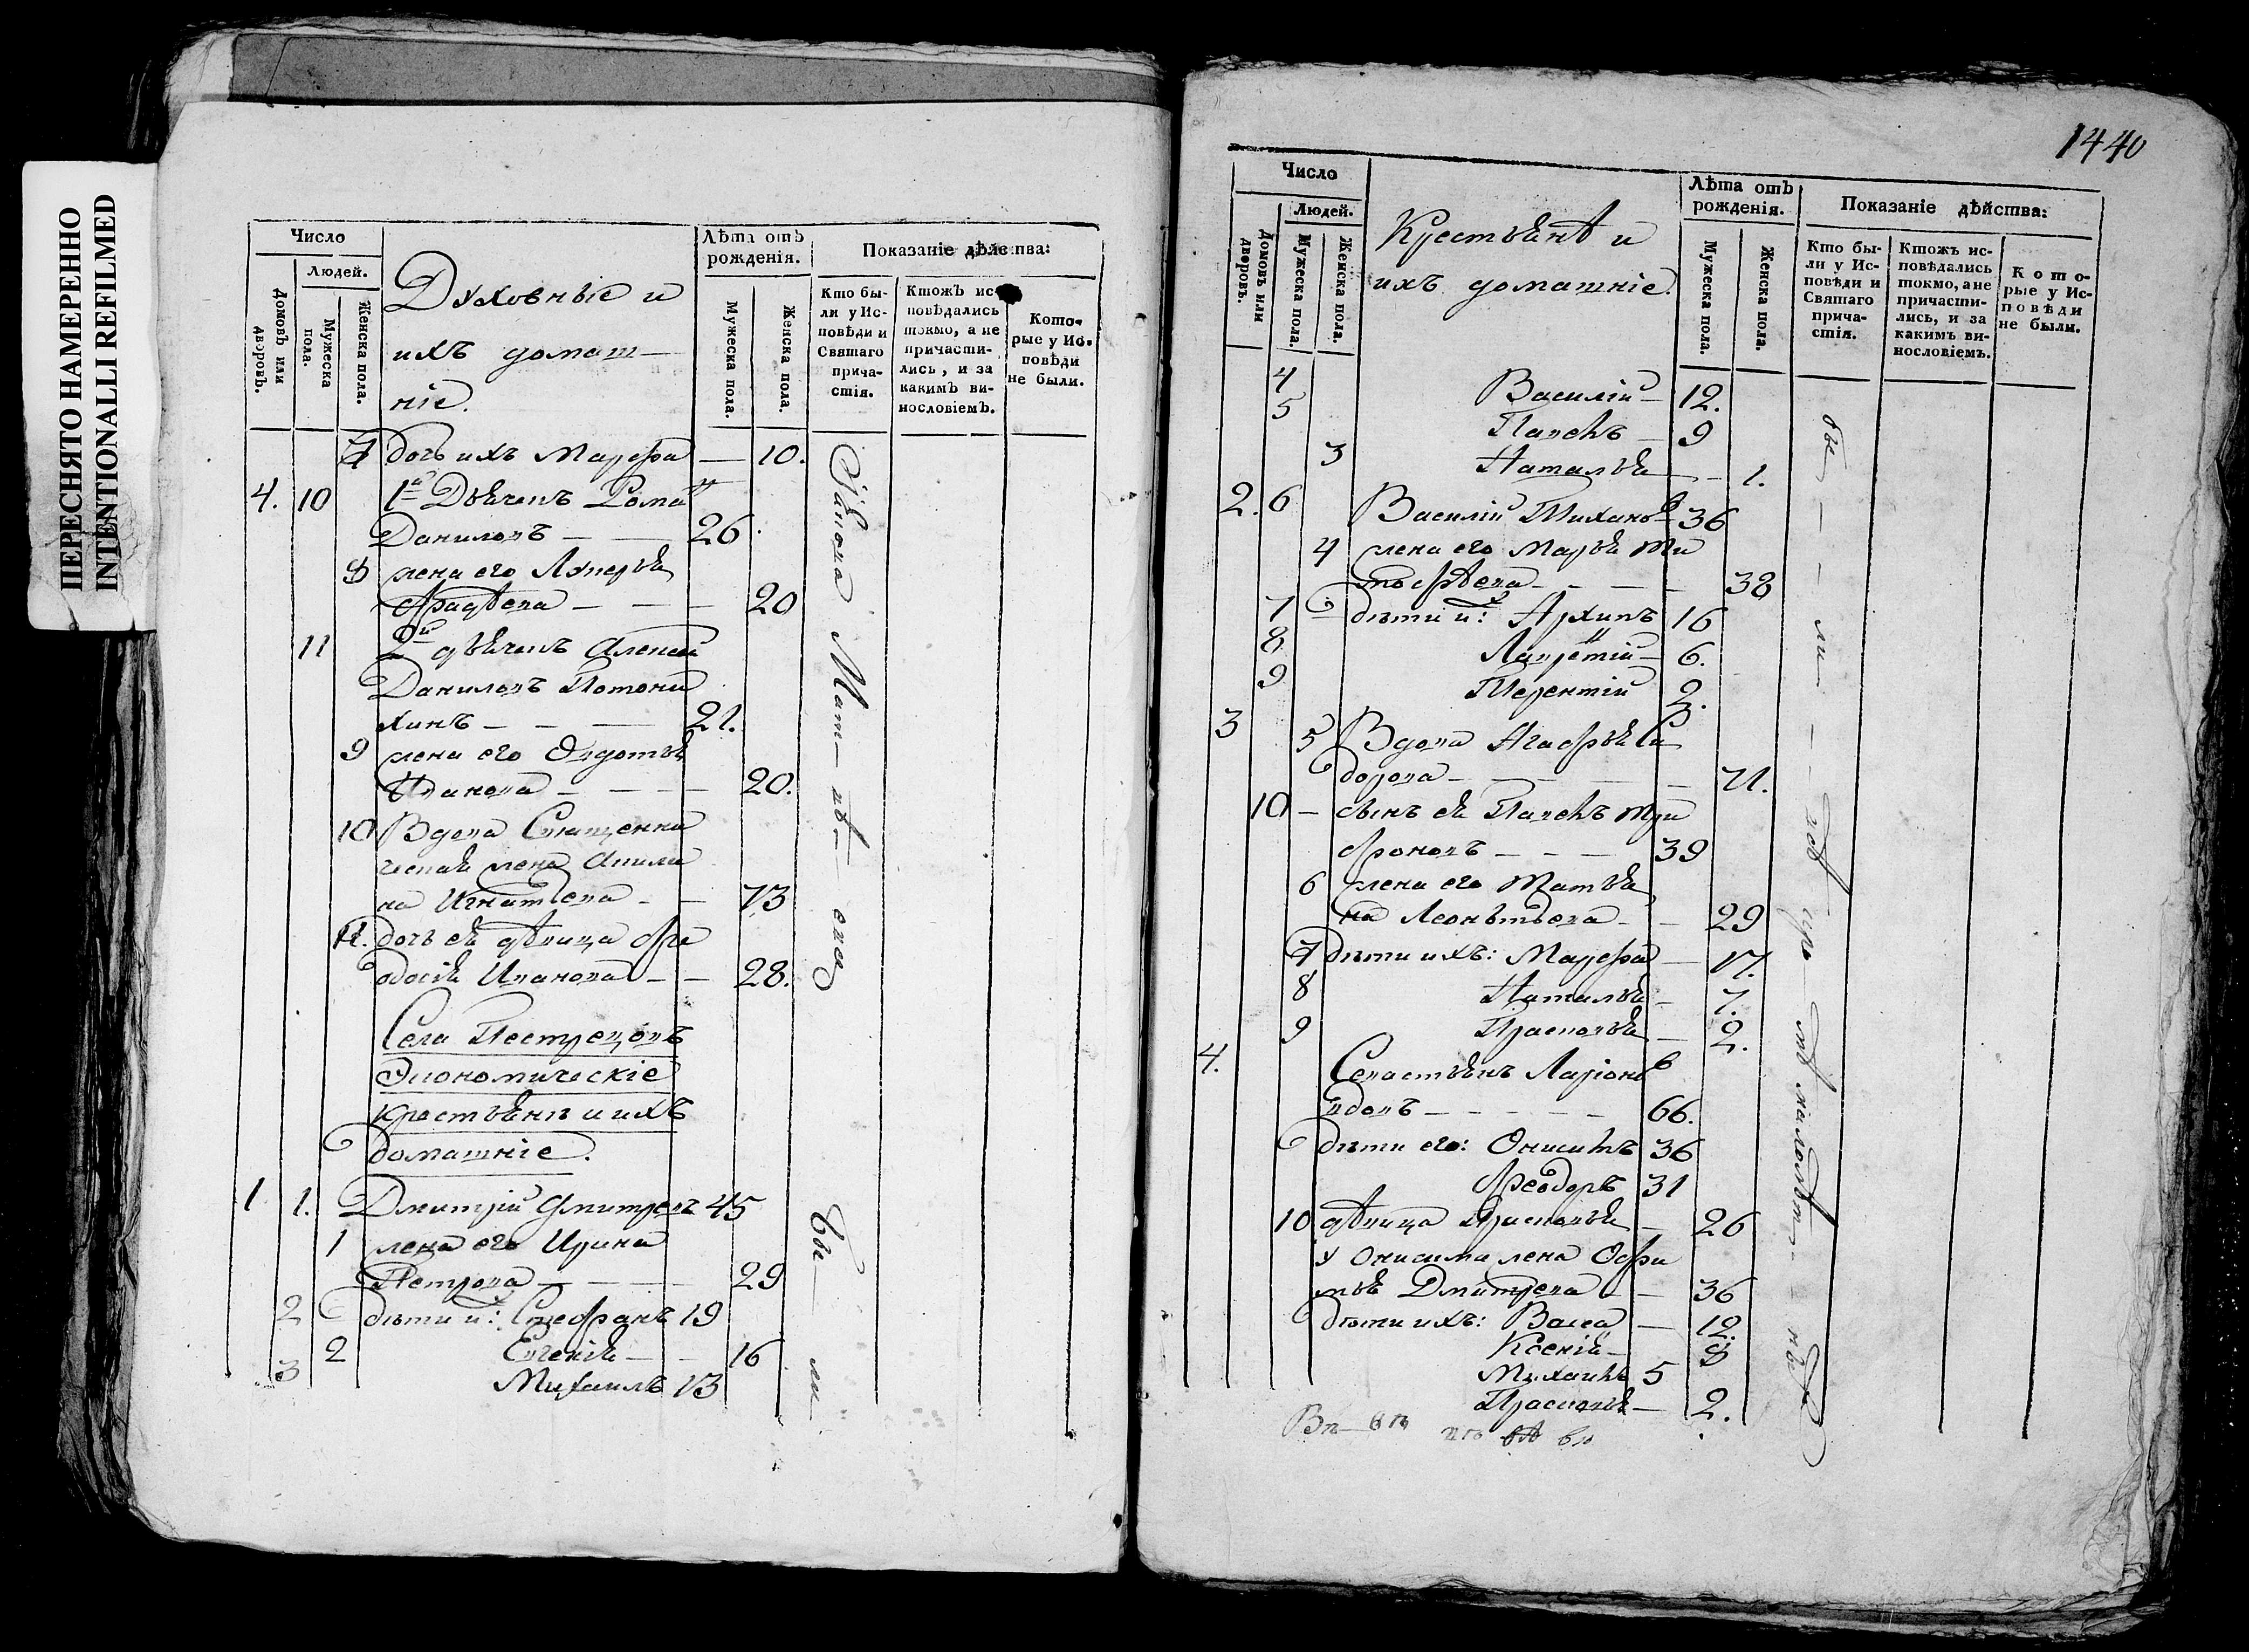 ПЕРЕСНЯТО НАМЕРЕННО
INTENTIONALLI REFILMED
Число
Людей.
Домовъ или дворовъ.
Мужеска пола.
Женска пола.
Духовные и
ихъ домаш-
ніе.
Лѣта отъ рожденія.
Мужеска пола.
Женска пола.
Показаніе дѣйства:
Кто были у Исповѣди и Святаго причастія.
Ктожъ исповѣдались токмо, а не причастились, и за какимъ винословіемъ.
Которые у Исповѣди не были.
дочь ихъ Марфа — 10.
4. 10 1й Дьячекъ Романъ
Даниловъ — 26
8 жена его Лукерья
Фадѣева — 20
11 2й дьячекъ Алексей
Даниловъ
хинъ — 21.
9 жена его Авдотья
Иванова — 20.
10 Вдова Священни
ческая жена Акили
на Игнатьева — 73
11. дочь ея дѣвица Ѳе
одосія Иванова — 28.
Села Пестрецовъ
Экономическіе
крестьяне и ихъ
домашніе.
1 1. Дмитрій Дмитревъ 45
1 жена его Ирина
Петрова — 29
2 дѣти ихъ: Стефанъ 19
2 Евгенія — 16
3 Михаилъ 13
бы ли
1440
Число
Людей.
Домовъ или дворовъ.
Мужеска пола.
Женска пола.
Крестьянѣ и
ихъ домашніе.
Лѣта отъ рожденія.
Мужеска пола.
Женска пола.
Показаніе дѣйства:
Кто были у Исповѣди и Святаго причастія.
Ктожъ исповѣдались токмо, а не причастились, и за какимъ винословіемъ.
Которые у Исповѣди не были.
4 Василій — 12.
5 Павелъ — 9
3 Наталья — 1.
2. 6 Василій Тихановъ 36
4 жена его Марья Ти
мофѣева — 38
7 дѣти ихъ: Архипъ 16
8 Лаврентій — 6.
9 Терентій 2.
3 5 Вдова Агафья Си
дорова — 71.
10 — сынъ ея Павелъ Три
фоновъ — 39
6 жена его Татья
на Леонтьева — 29
7 дѣти ихъ: Марфа — 17.
8 Наталья — 7.
9 Прасковья — 2.
4. Севастьянъ Ларіоновъ
вдовъ — 66.
дѣти его: Онисимъ 36
Ѳеодоръ 31
10 дѣвица Прасковья — 26
у Онисима жена Офи
мья Дмитрева — 36
дѣти ихъ: Васса — 12.
Ксенія — 8
Михаилъ 5
Прасковья — 2.
бы — ли